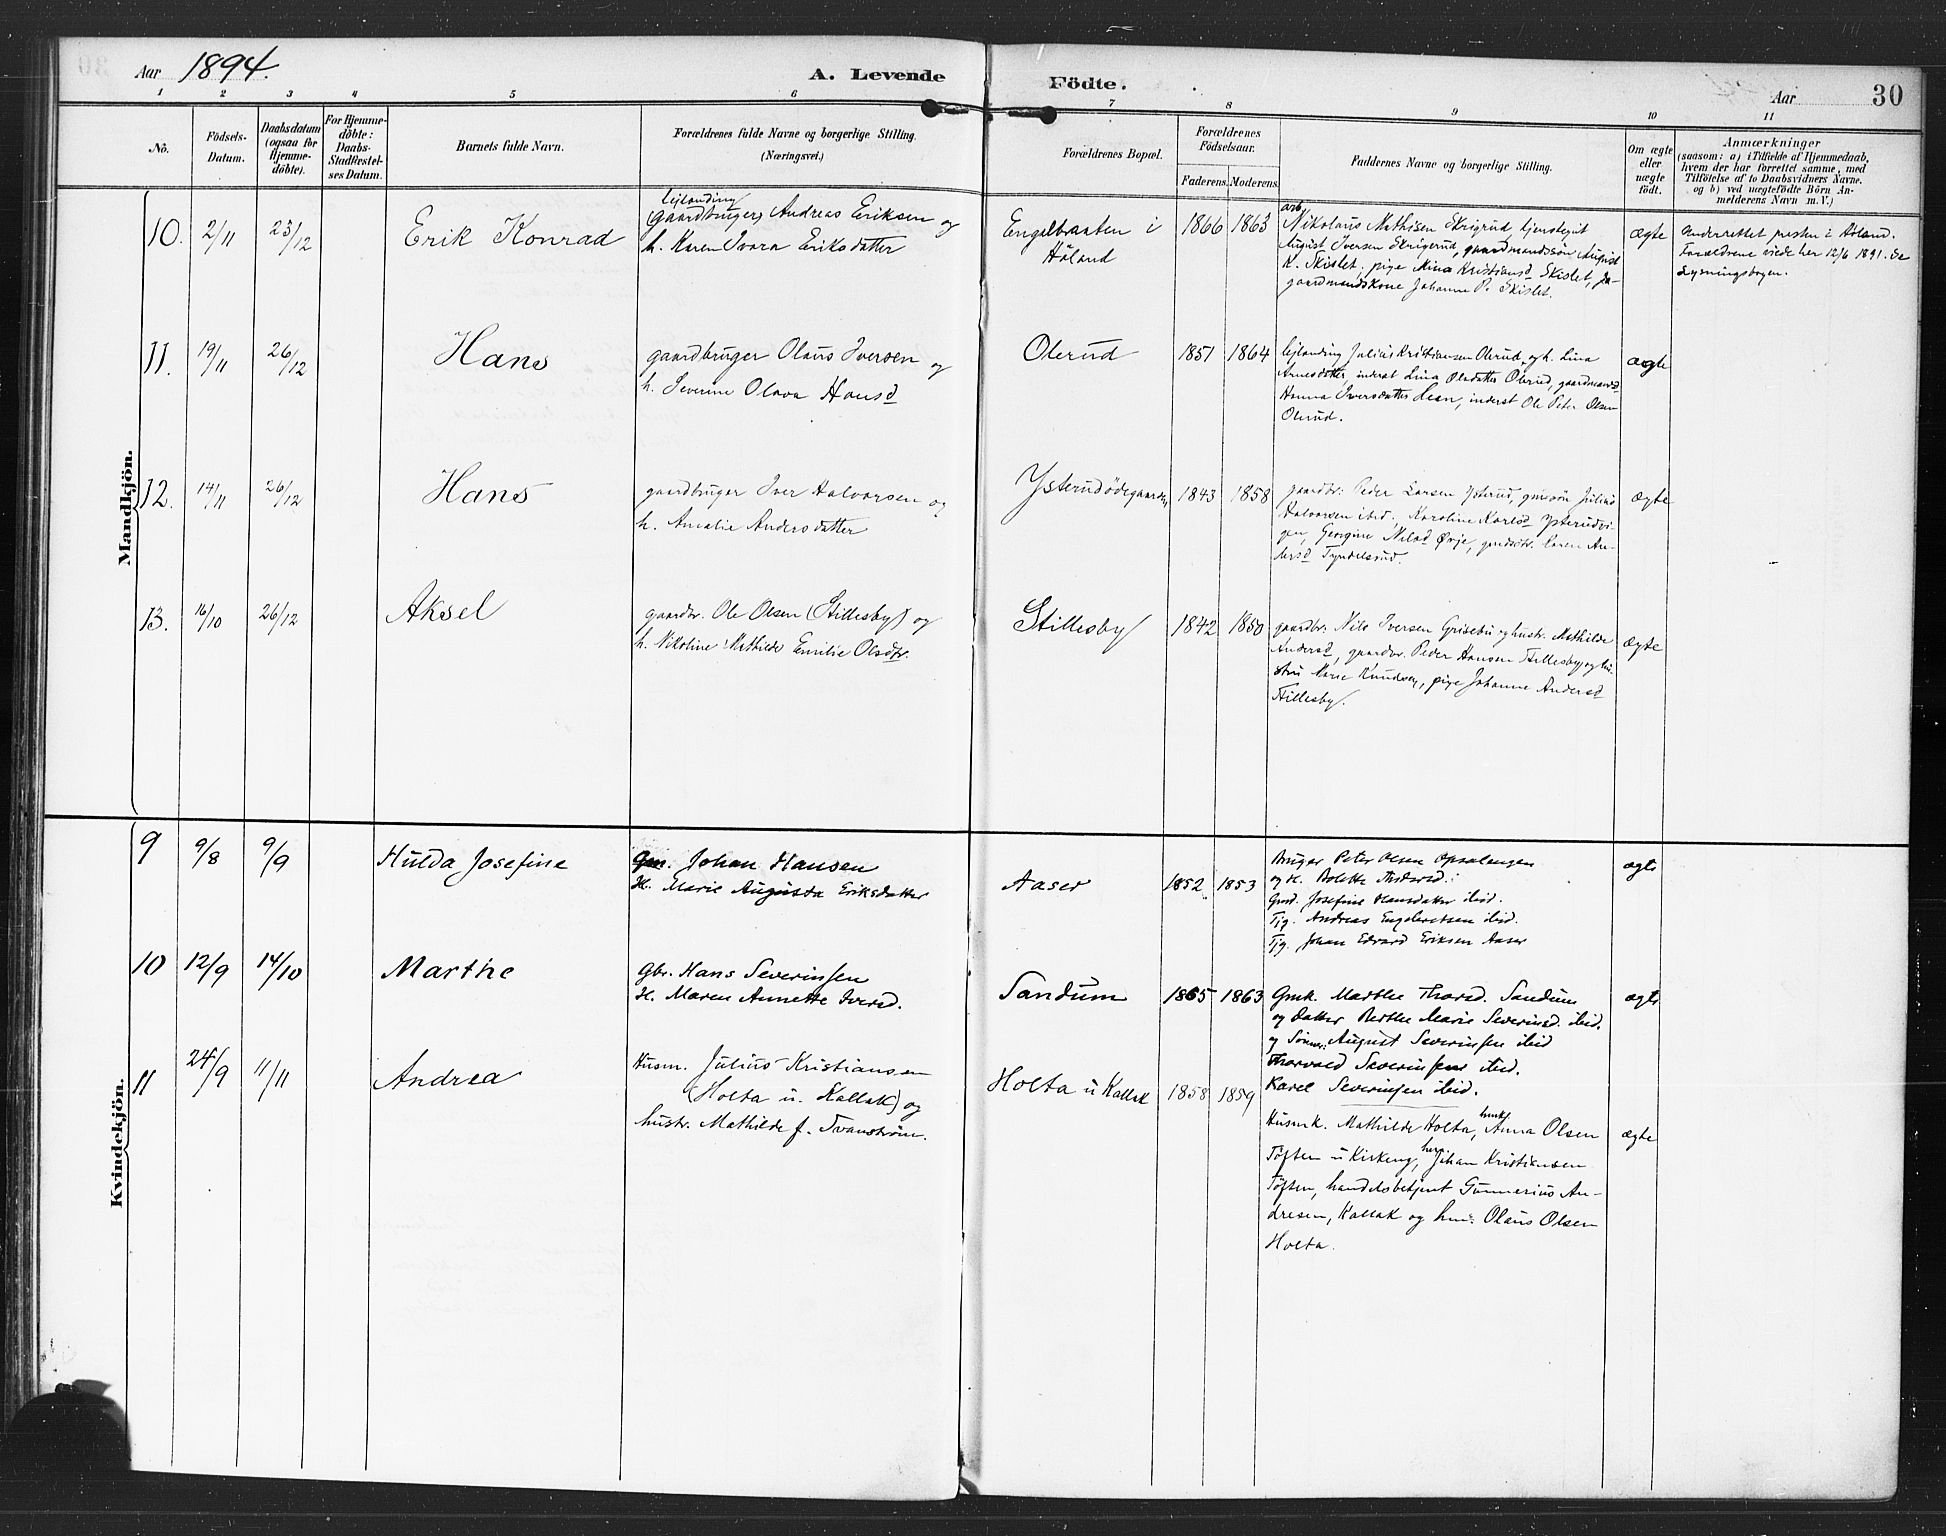 Aar 1894. A. Levende Födte. Aar 30
1 2 3 4 5 6 7 8 9 10 11
No.
Födsels-
Datum.
Daabsdatum
(ogsaa for
Hjemme-
döbte).
For Hjemme-
döbte:
Daabs-
Stadfæstel-
ses Datum.
Barnets fulde Navn.
Forældrenes fulde Navne og borgerlige Stilling.
(Næringsvei.)
Forældrenes Bopæl.
Forældrenes
Födselsaar.
Faderens. Moderens.
Faddernes Navne og borgerlige Stilling.
Om ægte
eller
uægte
födt.
Anmærkninger
(saasom: a) i Tilfælde af Hjemmedaab,
hvem der har forrettet samme, med
Tilföielse af to Daabsvidners Navne,
og b) ved uægtefödte Börn An-
melderens Navn m. V.)
Mandkjön.
10. 2/11 23/12
Erik Konrad
lejlænding
(gaardbruger) Andreas Eriksen og
h. Karen Ivara Eriksdatter
Engelbraaten i
Höland
1866 1863
arb.
Nikolaus Mathisen Skrigrud, tjenstegut
August Iversen Skrigerud, gaardmandssön August
K. Skislet, pige Mina Kristiansd Skislet,
gaardmandskone Johanne P. Skislet.
ægte
Underrettet presten i Höland.
Forældrene viede her 12/6 1891. Se
Lysningsbogen.
11. 19/11 26/12
Hans
gaardbruger Olaus Iversen og
h. Severine Olava Hansd
Olerud
1851 1864
lejlænding Julius Kristiansen Olerud, og h. Lina
Arnesdatter, inderst Lina Olsdatter Olerud, gaardmandsd
Hanna Iversdatter Lean, inderst Ole Peter Olsen
Olerud.
ægte
12. 14/11 26/12
Hans
gaardbruger Iver Halvorsen og
h. Amalie Andersdatter
Ysterudödegaarden
1843 1858
gaardbr. Peder Larsen Ysterud, gmssön Julius
Halvorsen ibid., Karoline Karlsd Ysterudvi-
gen, Georgine Nilsd Ørje, gmdsdtr. Karen An-
dersd Tyndelsrud.
ægte
13. 16/10 26/12
Aksel
gaardbr. Ole Olsen (Stillesby) og
h. Nikoline Mathilde Emilie Olsdtr.
Stillesby
1842 1850
gaardbr. Nils Iversen Grisebu og hustr. Mathilde
Andersd, gaardbr. Peder Hansen Stillesby og hu-
stru Marie Knudsen, pige Johanne Andersd
Stillesby.
ægte
Kvindekjön.
9 9/8 9/9
Hulda Josefine
Gm. Johan Hansen
H. Marie Augusta Eriksdatter
Aaser
1852 1853
Bruger Peter Olsen Opsalengen
og H. Bolette Andersd.
Gmd. Josefine Hansdatter ibid.
Tjg. Andreas Engebretsen ibid.
Tjg. Johan Edvard Eriksen Aaser
ægte
10 12/9 14/10
Marthe
Gbr. Hans Severinsen
H. Maren Annette Iversd.
Sandum
1865 1863
Gmk. Marthe Thorsd. Sandum
og Datter Berthe Marie Severinsd. ibid.
og Sönner: August Severinsen ibid
Thorvald Severinsen ibid.
Karel Severinsen ibid.
ægte
11 24/9 11/11
Andrea
Husm. Julius Kristiansen
(Holta u. Kallak) og
hustr. Mathilde f. Svanström.
Holta u Kallak
1858 1859
Husmk. Mathilde Holta, husmk Anna Olsen
Toften u Kirkeng, husm. Johan Kristiansen
Toften, handelsbetjent Gunnerius An-
dresen, Kallak og hm. Olaus Olsen
Holta.
ægte